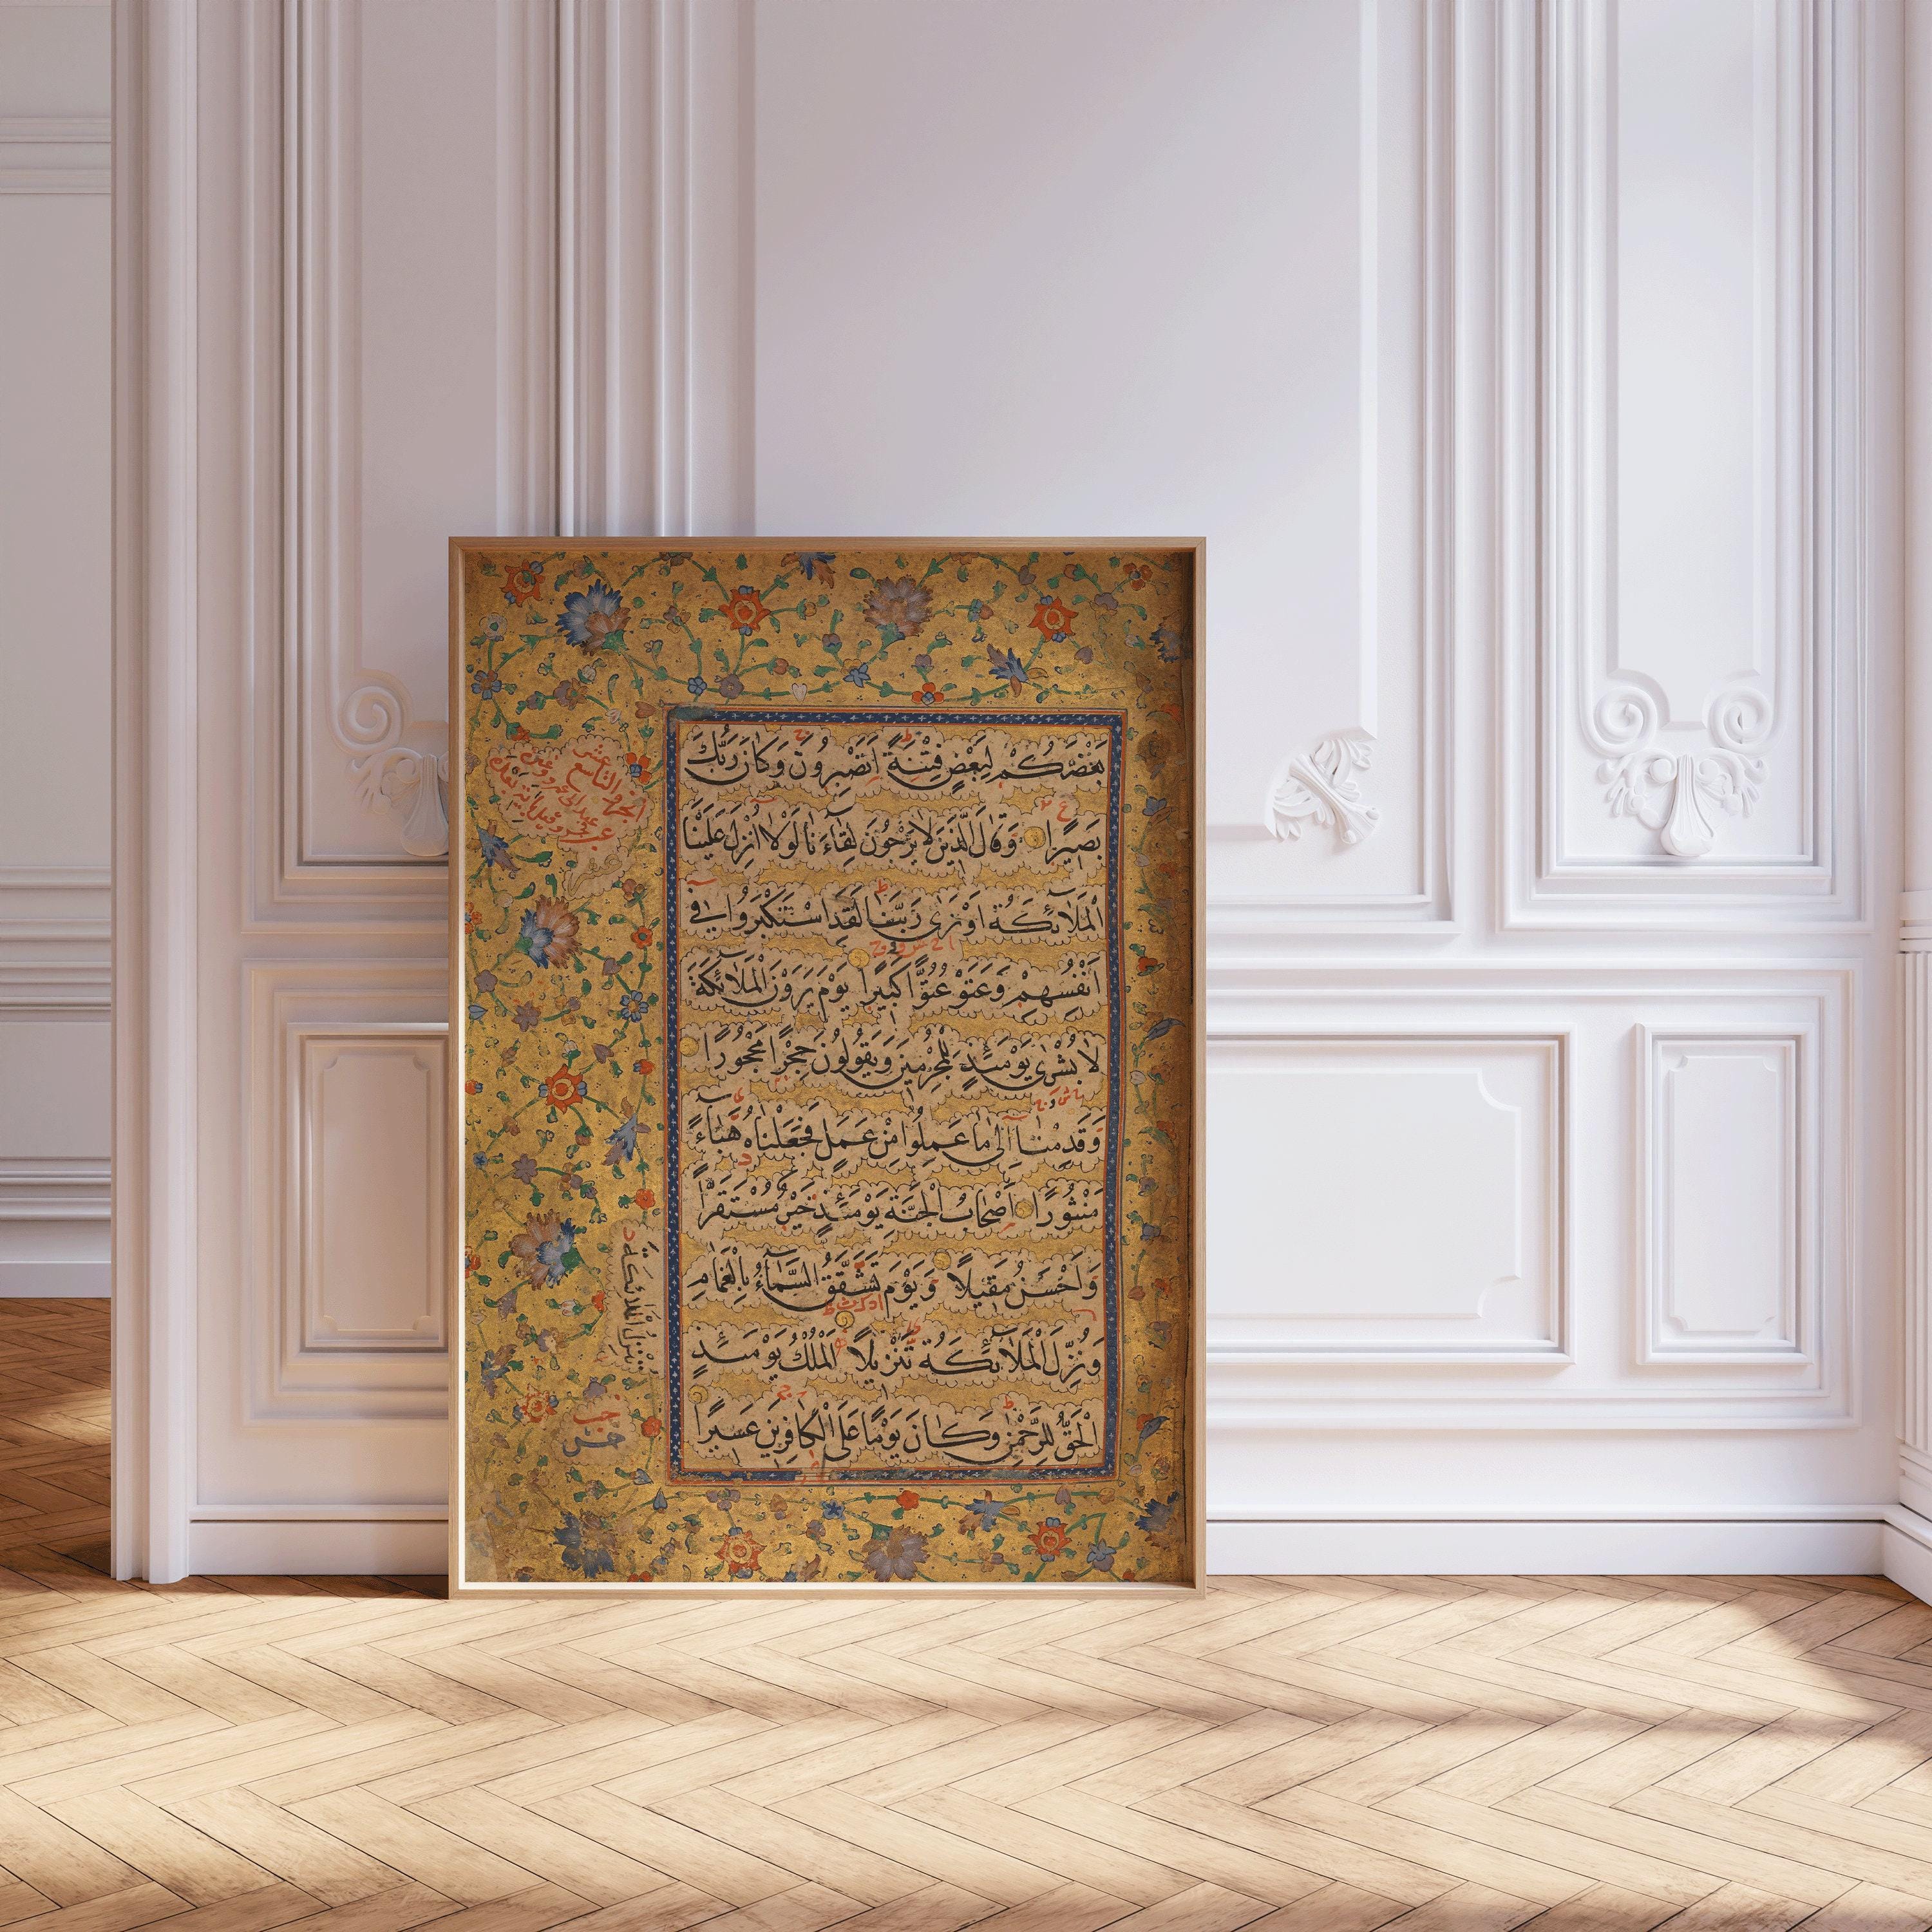 بَعْضَكُمْ لِبَعْضٍ فِتْنَةً اَتَصْبِرُونَ وَكَانَ رَبُّكَ
بَصِيرًا وَقَالَ الَّذِينَ لَا يَرْجُونَ لِقَاءَنَا لَوْلَا اُنْزِلَ عَلَيْنَا
الْمَلَائِكَةُ اَوْ نَرٰى رَبَّنَا لَقَدِ اسْتَكْبَرُوا فِي
اَنْفُسِهِمْ وَعَتَوْ عُتُوًّا كَبِيرًا يَوْمَ يَرَوْنَ الْمَلَائِكَةَ
لَا بُشْرٰى يَوْمَئِذٍ لِلْمُجْرِمِينَ وَيَقُولُونَ حِجْرًا مَحْجُورًا
وَقَدِمْنَا اِلٰى مَا عَمِلُوا مِنْ عَمَلٍ فَجَعَلْنَاهُ هَبَاءً
مَنْثُورًا اَصْحَابُ الْجَنَّةِ يَوْمَئِذٍ خَيْرٌ مُسْتَقَرًّا
وَاَحْسَنُ مَقِيلًا وَيَوْمَ تَشَقَّقُ السَّمَاءُ بِالْغَمَامِ
وَنُزِّلَ الْمَلَائِكَةُ تَنْزِيلًا اَلْمُلْكُ يَوْمَئِذٍ
الْحَقُّ لِلرَّحْمٰنِ وَكَانَ يَوْمًا عَلَى الْكَافِرِينَ عَسِيرًا